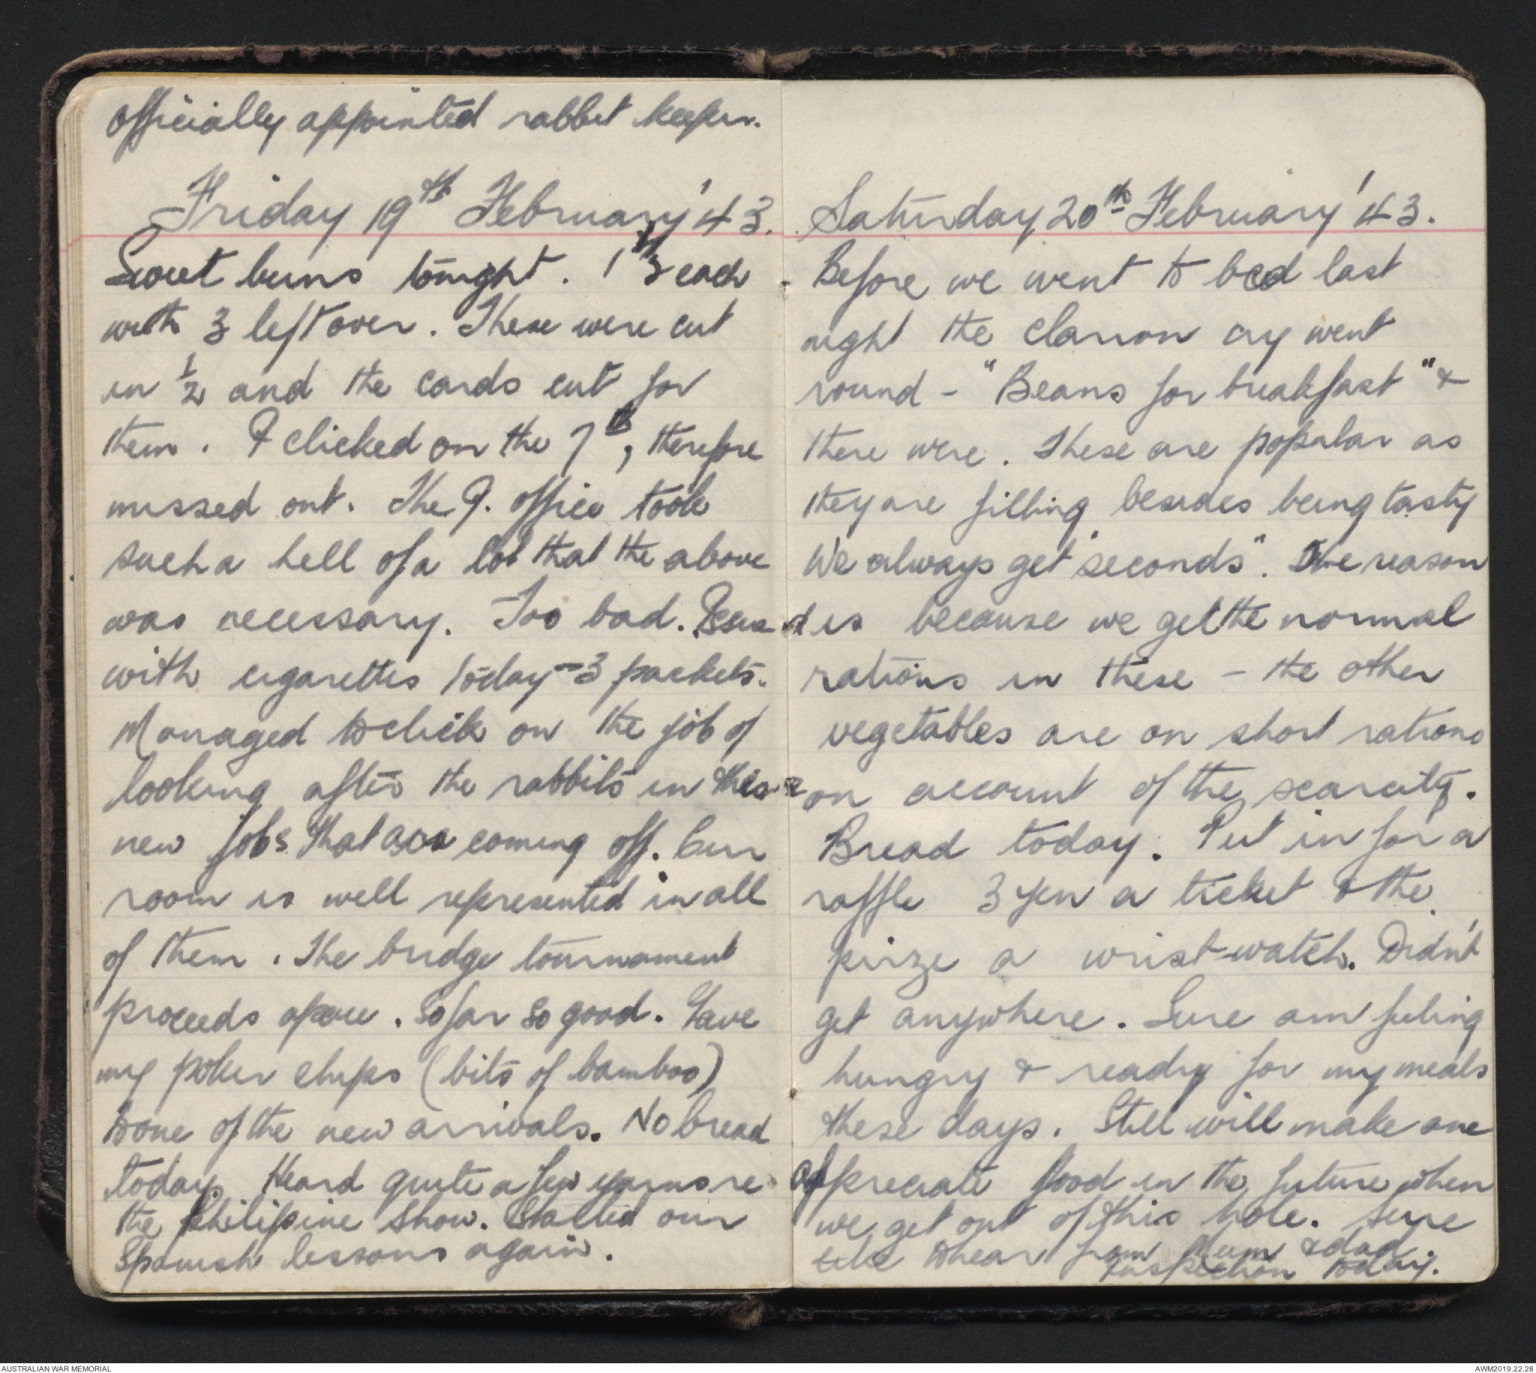 officially appointed rabbit keeper.
Friday 19th February '43.
Sweet buns tonight. 1 1/3 each
with 3 left over. These were cut
in ½ and the cards cut for
them. I clicked on the 7th, therefore
missed out. The J. office took
such a hell of a lot that the above
was necessary. Too bad. Issued
with cigarettes today - 3 packets.
Managed to click on the job of
looking after the rabbits in these
new jobs that are coming off. Our
room is well represented in all
of them. The bridge tournament
proceeds apace. So far so good. Gave
my poker chips (bits of bamboo)
to one of the new arrivals. No bread
today. Heard quite a few yarns re
the Philipine show. Started our
Spanish lessons again.
Saturday 20th February '43.
Before we went to bed last
night the clarion cry went
round - "Beans for breakfast" &
there were. These are popular as
they are filling besides being tasty
We always get "seconds". The reason
is because we get the normal
rations in these - the other
vegetables are on short rations
on account of the scarcity.
Bread today. Put in for a
raffle 3 yen a ticket & the
prize a wrist-watch. Didn't
get anywhere. Sure am feeling
hungry & ready for my meals
these days. Still will make one
appreciate food in the future when
we get out of this hole. Sure
like to hear from Mum & dad
Inspection today.
AUSTRALIAN WAR MEMORIAL
AWM2019.22.28